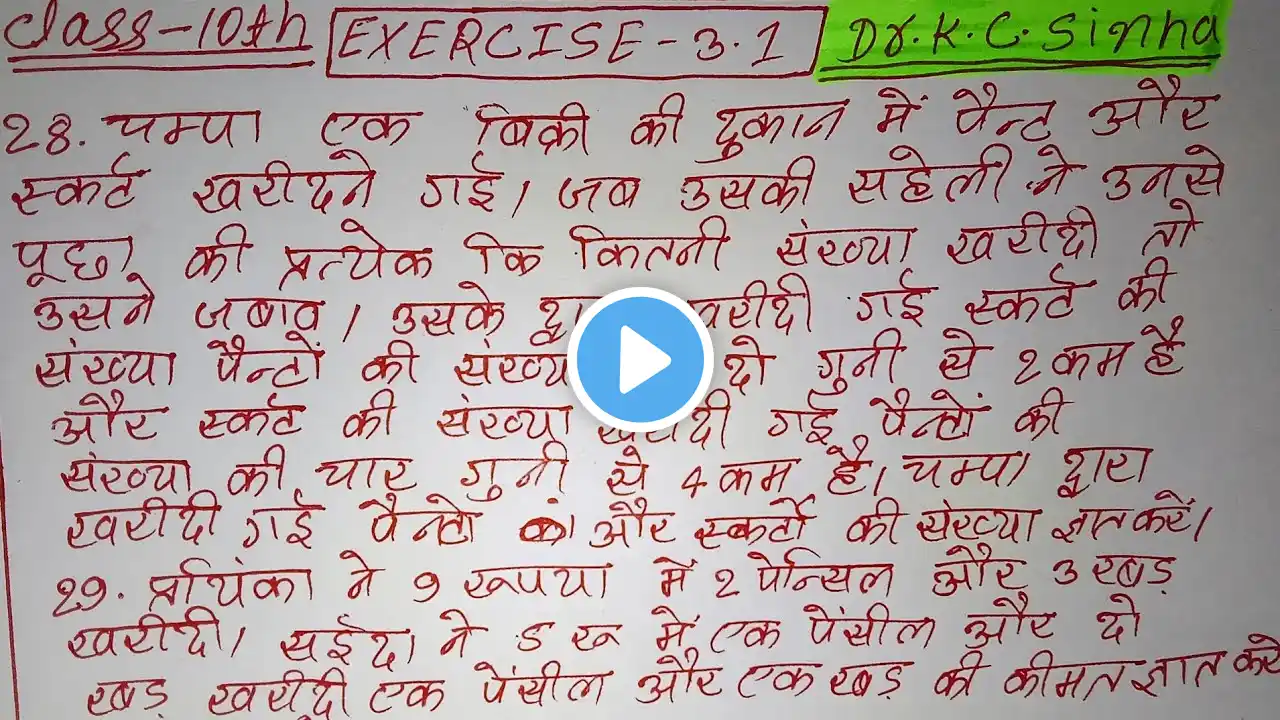 Class-10th EXERCISE-3.1 Dr. K. C. Sinha
28. चम्पा एक बिक्री की दुकान में पैन्ट और
स्कर्ट खरीदने गई। जब उसकी सहेली ने उनसे
पूछा की प्रत्येक कि कितनी संख्या खरीदी तो
उसने जबाव। उसके गई स्कर्ट की
संख्या पैन्टों की दो गुनी से 2 कम है
और स्कर्ट की संख्या गई पैन्टों की
संख्या की चार गुनी से 4 कम है। चम्पा द्वारा
खरीदी गई पैन्टो और स्कर्टो की संख्या ज्ञात करें।
29. प्रियंका ने 9 रूपया में 2 पेन्सिल और 3 रबड़
खरीदी। सईदा ने 5 रू में एक पेंसील और दो
रबड़ खरीदी एक पेंसील और एक रबड़ की कीमत ज्ञात करे